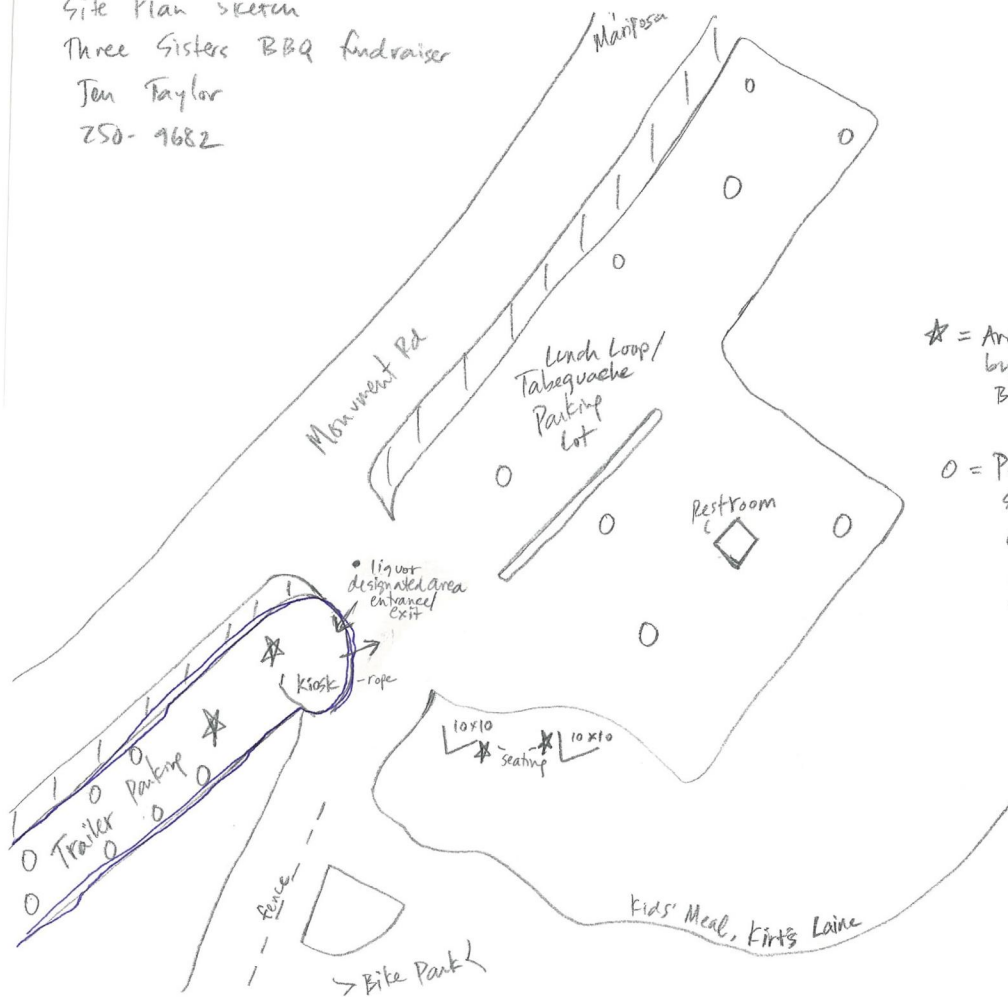 Site Plan Sketch
Three Sisters BBQ fundraiser
Jen Taylor
250-9682
Mariposa
Monument Rd
Lunch Loop/
Tabeguache
Parking
Lot
Restroom
• liquor
designated area
entrance/
exit
Kiosk
rope
Trailer Parking
10x10
seating
10x10
fence
>Bike Park<
Kids' Meal,
☆ =
O =